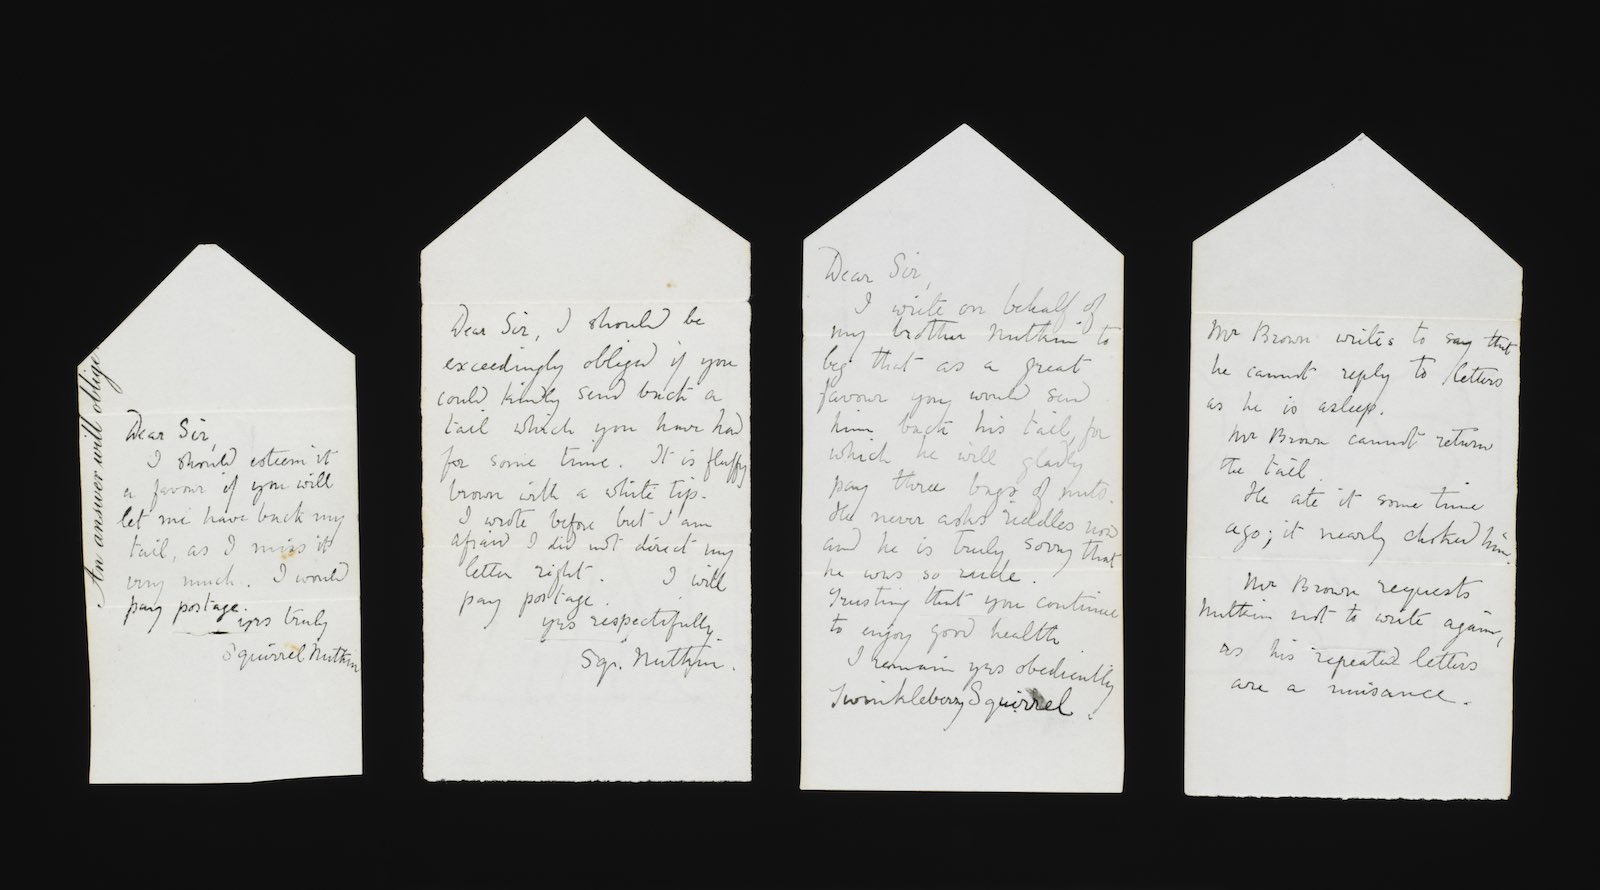 An answer will oblige
Dear Sir,
I should esteem it
a favour if you will
let me have back my
tail, as I miss it
very much. I would
pay postage.
yrs truly
Squirrel Nutkin
Dear Sir, I should be
exceedingly obliged if you
could kindly send back a
tail which you have had
for some time. It is fluffy
brown with a white tip.
I wrote before but I am
afraid I did not direct my
letter right. I will
pay postage.
yrs respectifully.
Sqr. Nutkin.
Dear Sir,
I write on behalf of
my brother Nutkin to
beg that as a great
favour you would send
him back his tail, for
which he will gladly
pay three bags of nuts.
He never asks riddles now
and he is truly sorry that
he was so rude.
Trusting that you continue
to enjoy good health
I remain yrs obediently
Twinkleberry Squirrel.
Mr Brown writes to say that
he cannot reply to letters
as he is asleep.
Mr Brown cannot return
the tail.
He ate it some time
ago; it nearly choked him.
Mr Brown requests
Nutkin not to write again,
as his repeated letters
are a nuisance.